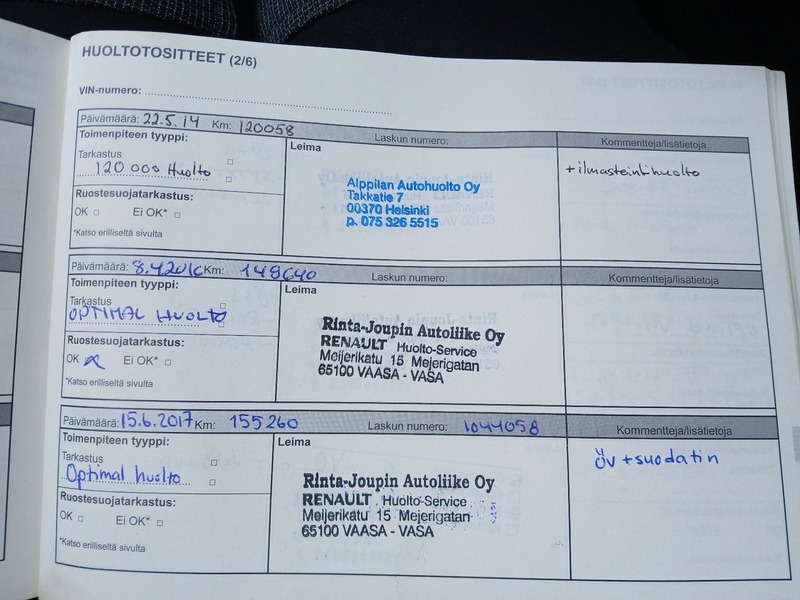 HUOLTOTOSITTEET (2/6)
VIN-numero:
Päivämäärä: 22.5.14 Km: 120058 Laskun numero: Kommentteja/lisätietoja
Toimenpiteen tyyppi:
Tarkastus
120 000 Huolto
Ruostesuojatarkastus:
OK Ei OK*
*Katso erilliseltä sivulta
Leima
Alppilan Autohuolto Oy
Takkatie 7
00370 Helsinki
p. 075 326 5515
+ilmastointihuolto
Päivämäärä: 8.4.2016 Km: 149640 Laskun numero: Kommentteja/lisätietoja
Toimenpiteen tyyppi:
Tarkastus
OPTIMAL HUOLTO
Ruostesuojatarkastus:
OK x Ei OK*
*Katso erilliseltä sivulta
Leima
Rinta-Joupin Autoliike Oy
RENAULT Huolto-Service
Meijerikatu 15 Mejerigatan
65100 VAASA - VASA
Päivämäärä: 15.6.2017 Km: 155260 Laskun numero: 1044058 Kommentteja/lisätietoja
Toimenpiteen tyyppi:
Tarkastus
Optimal huolto
Ruostesuojatarkastus:
OK Ei OK*
*Katso erilliseltä sivulta
Leima
Rinta-Joupin Autoliike Oy
RENAULT Huolto-Service
Meijerikatu 15 Mejerigatan
65100 VAASA - VASA
öv+suodatin